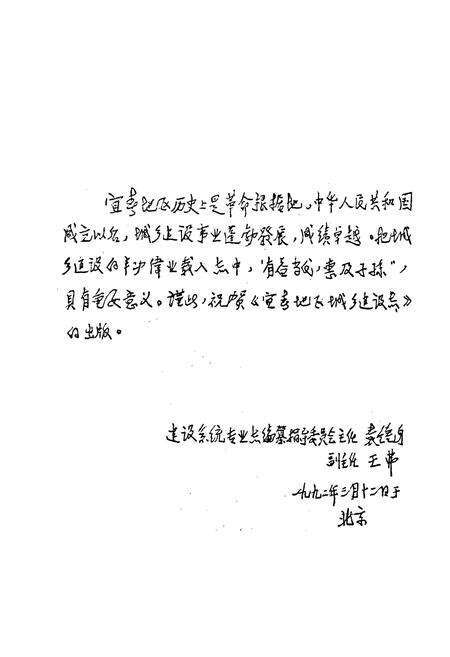 宜春地区历史上是革命根据地，中华人民共和国
成立以后，城乡建设事业蓬勃發展，成绩卓越。把城
乡建设的丰功偉业载入志中，"有益当代，惠及子孫"，
具有重要意义。谨此，祝贺《宜春地区城乡建设志》
的出版。
建设系统专业志编纂指导委员会主任 袁镜身
副主任 王弗
一九九二年三月十二日于
北京